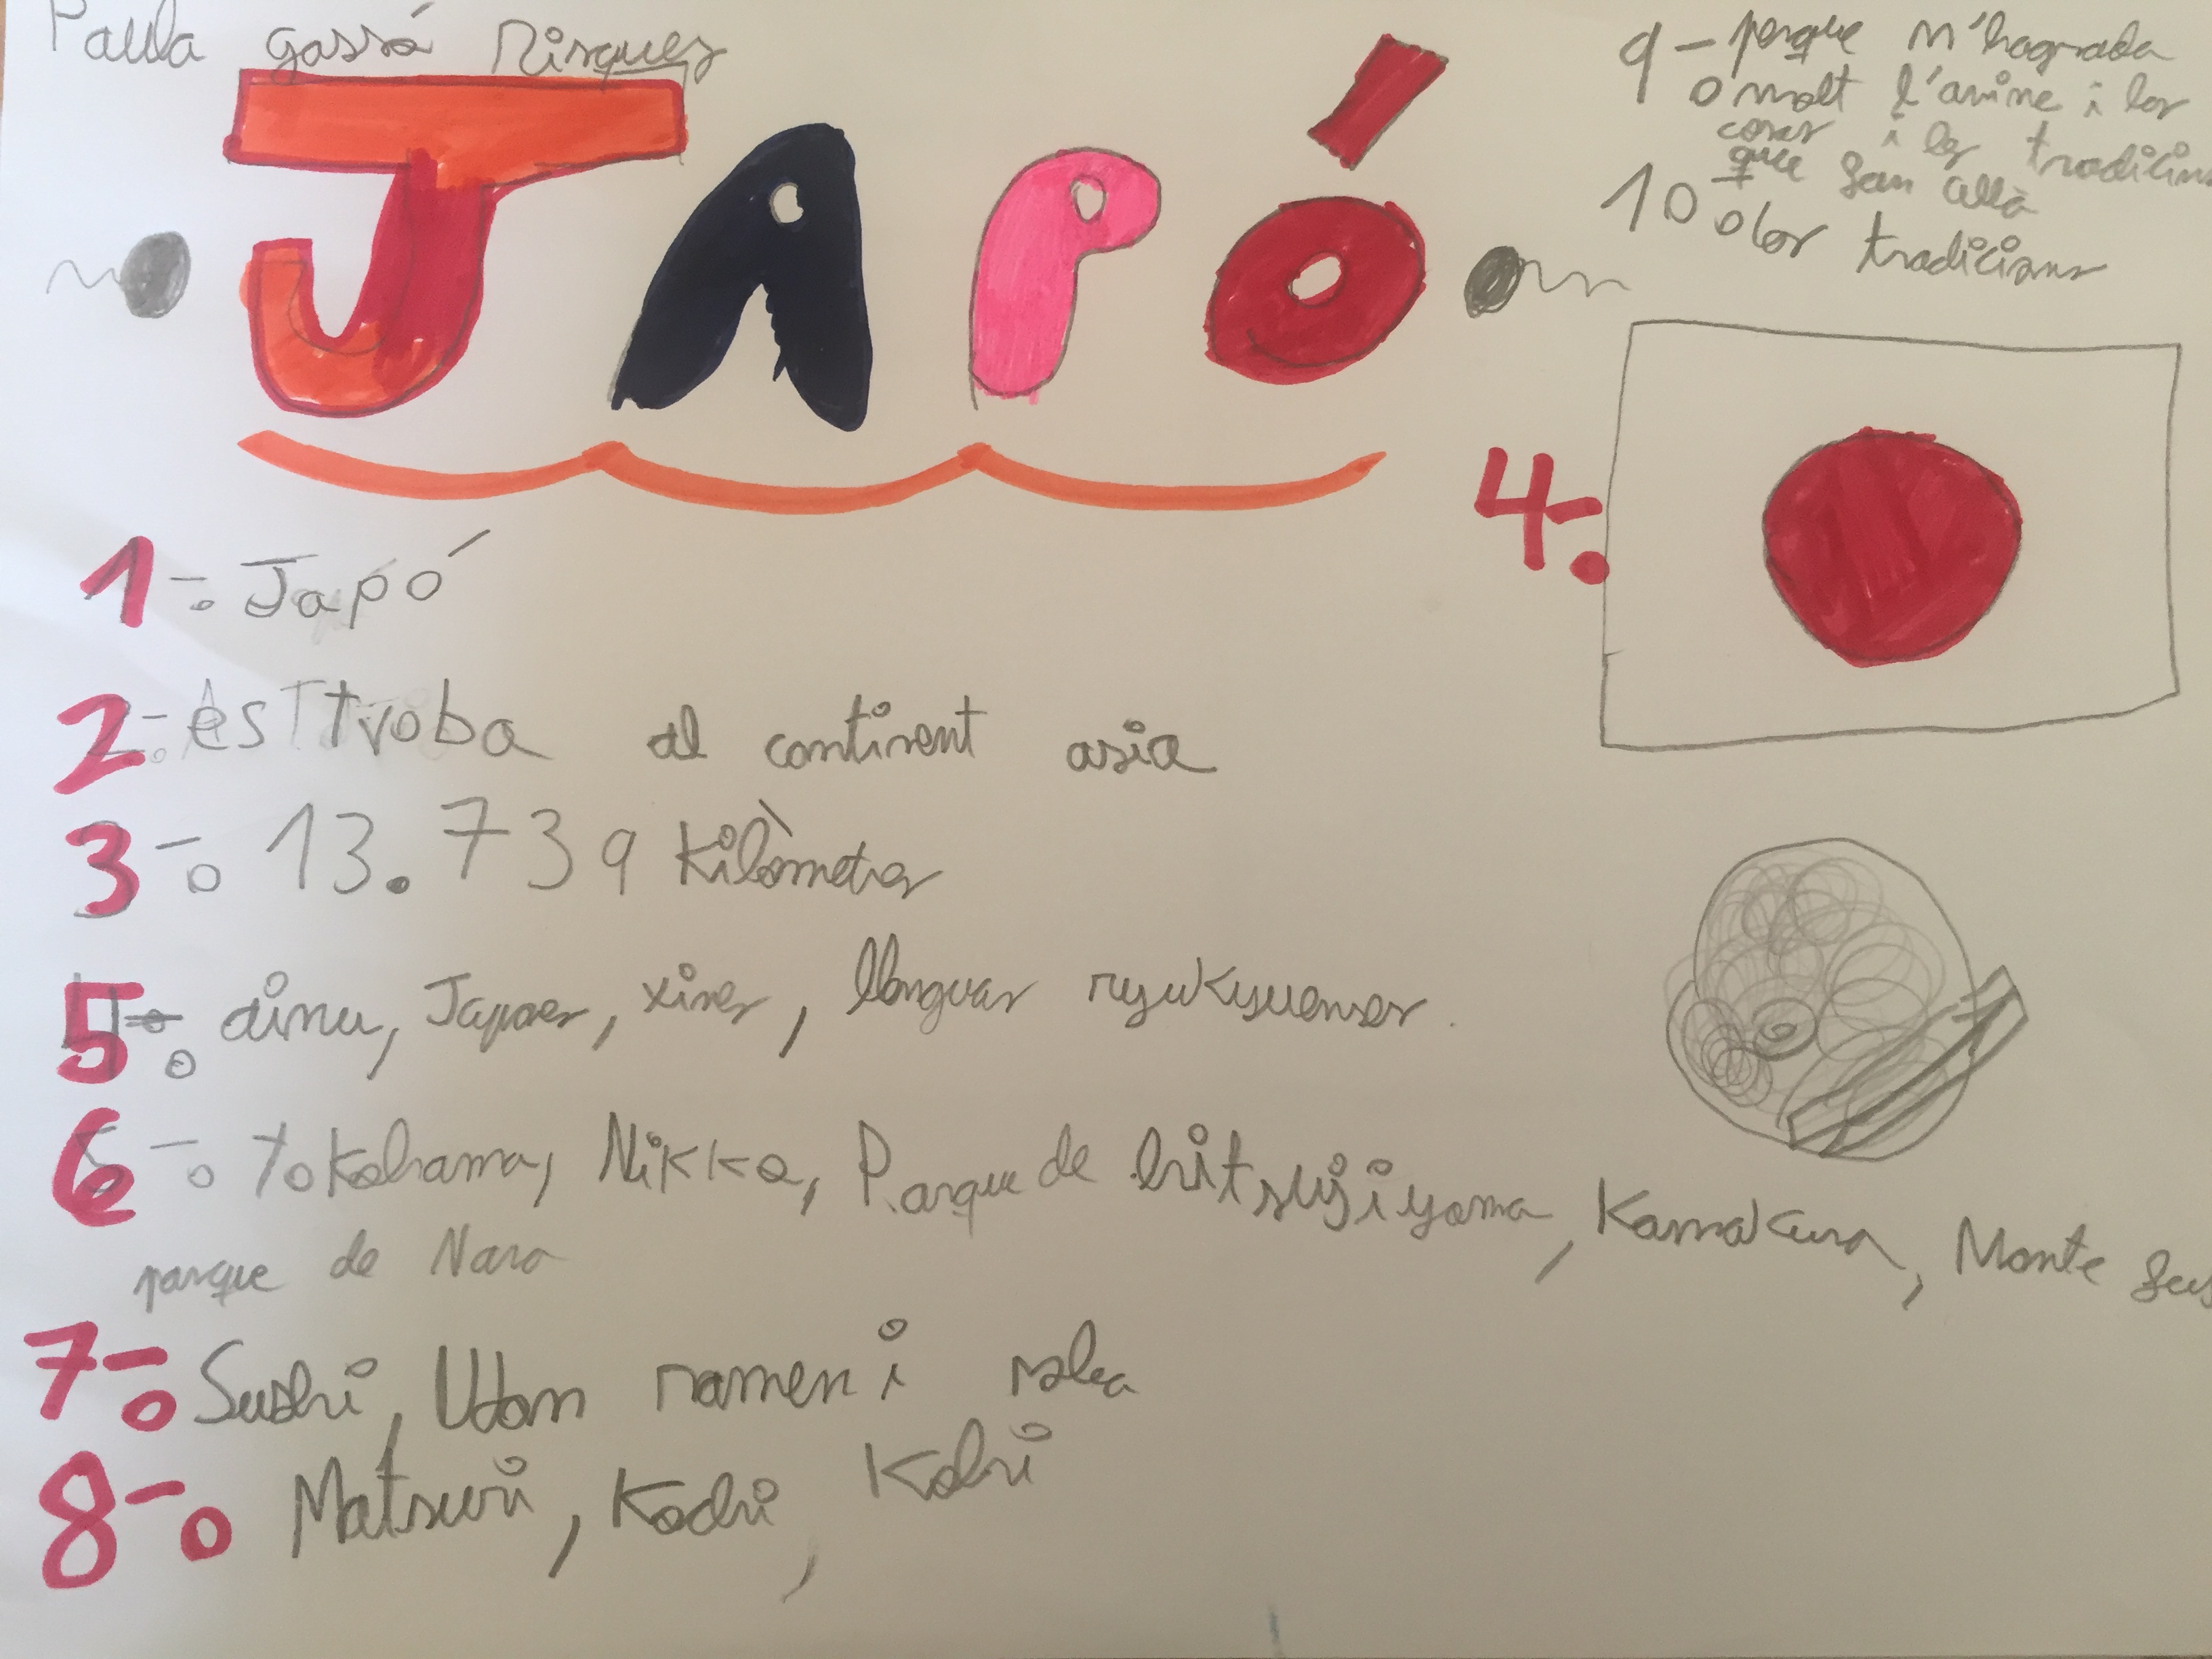 Paula gassó Risques
JAPÓ
1-. Japó
2-. és troba al continent asia
3-. 13.739 kilòmetres
4-.
5-. ainu, Japoes, xines, llenguas ryukyuenses.
6-. Yokohama, Nikko, Parque de hitsujiyama, Kamakura, Monte
parque de Nara
7-. Sushi, Udon ramen i
8-. Matsuri, Kochi, Kobri
9-. perque m'hagrada
molt l'anime i les
coses i les tradicions
que fan allà
10-. les tradicions